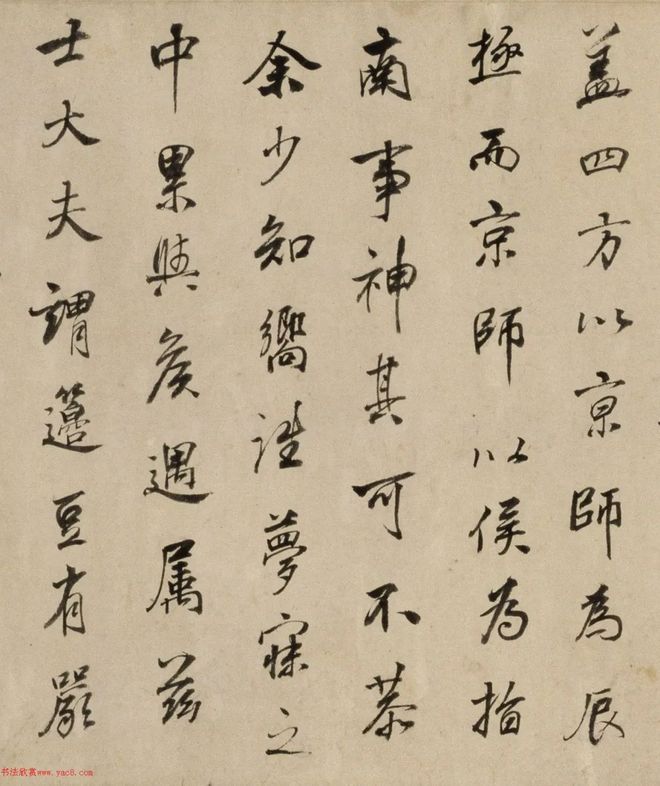 盖四方以京師為辰
極而京師以侯為指
南事神其可不恭
余少知嚮往夢寐之
中累與侯遇属兹
士大夫謂籩豆有嚴
书法欣赏www.yac8.com